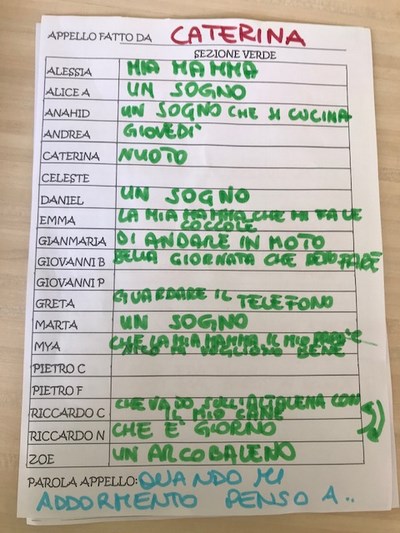 APPELLO FATTO DA CATERINA
SEZIONE VERDE
ALESSIA MIA MAMMA
ALICE A UN SOGNO
ANAHID UN SOGNO CHE SI CUCINA
ANDREA GIOVEDI'
CATERINA NUOTO
CELESTE
DANIEL UN SOGNO
EMMA LA MIA MAMMA CHE MI FA LE
COCCOLE
GIANMARIA DI ANDARE IN MOTO
GIOVANNI B BELLA GIORNATA CHE DEVO FARE
GIOVANNI P
GRETA GUARDARE IL TELEFONO
MARTA UN SOGNO
MYA CHE LA MIA MAMMA IL MIO
MI VOGLIONO BENE
PIETRO C
PIETRO F
RICCARDO C CHE VADO SULL'ALTALENA CON
IL MIO CANE
RICCARDO N CHE E' GIORNO
ZOE UN ARCOBALENO
PAROLA APPELLO: QUANDO MI
ADDORMENTO PENSO A..